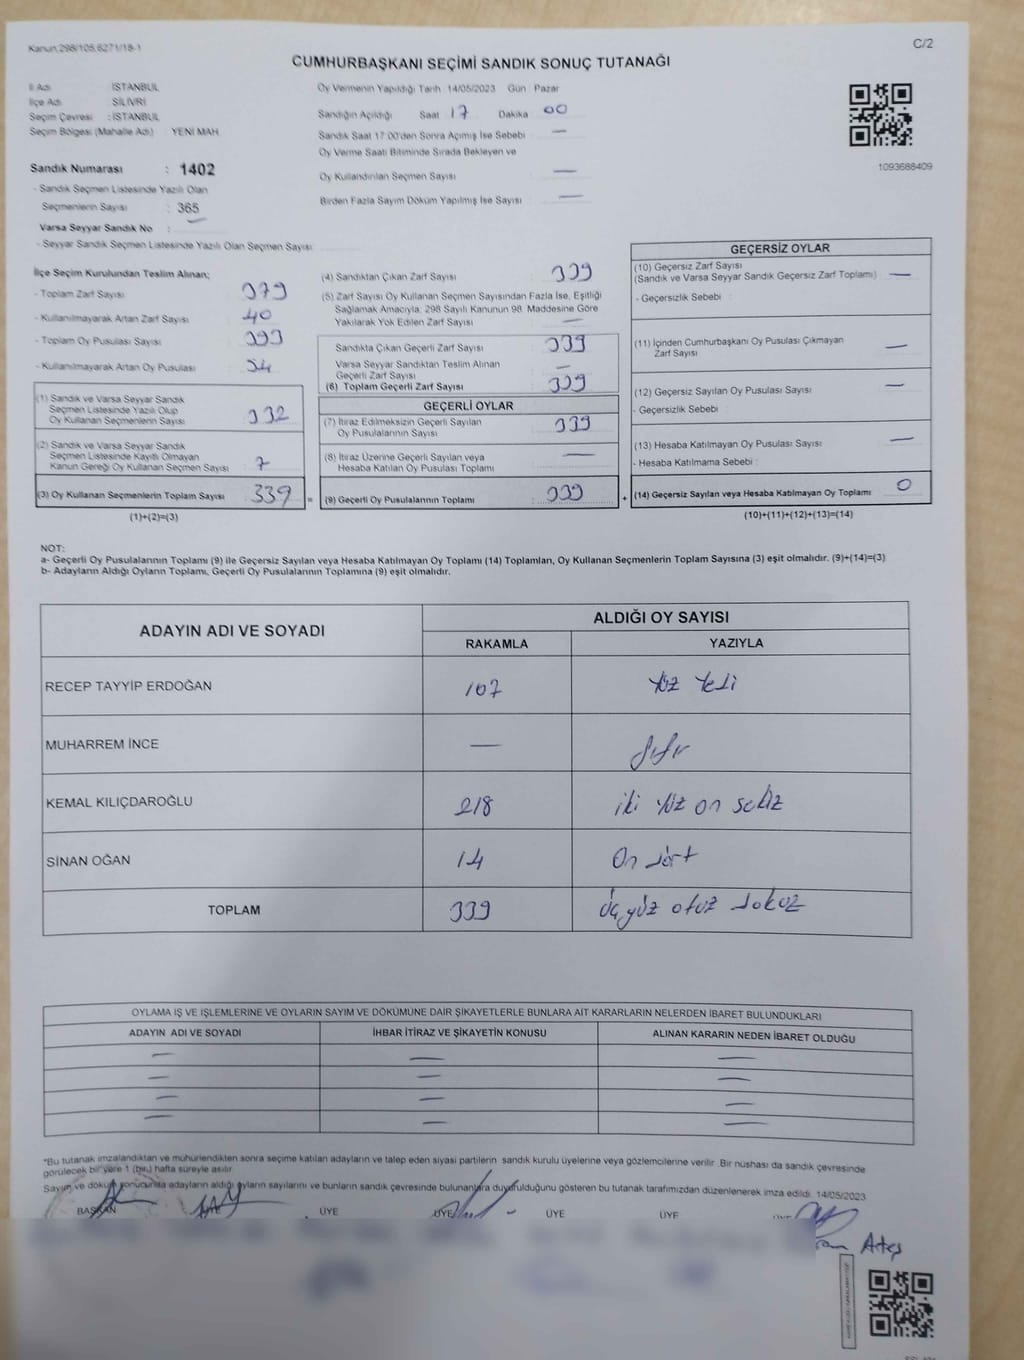 Kanun;298/105,6271/18-1
C/2
CUMHURBAŞKANI SEÇİMİ SANDIK SONUÇ TUTANAĞI
İl Adı : İSTANBUL
İlçe Adı : SİLİVRİ
Seçim Çevresi : İSTANBUL
Seçim Bölgesi (Mahalle Adı) : YENİ MAH
Sandık Numarası : 1402
- Sandık Seçmen Listesinde Yazılı Olan
Seçmenlerin Sayısı : 365
Varsa Seyyar Sandık No : —
- Seyyar Sandık Seçmen Listesinde Yazılı Olan Seçmen Sayısı:
Oy Vermenin Yapıldığı Tarih : 14/05/2023 Gün : Pazar
Sandığın Açıldığı Saat 17 Dakika 00
Sandık Saat 17:00'den Sonra Açımış İse Sebebi —
Oy Verme Saati Bitiminde Sırada Bekleyen ve
Oy Kullandırılan Seçmen Sayısı —
Birden Fazla Sayım Döküm Yapılmış İse Sayısı —
1093688409
İlçe Seçim Kurulundan Teslim Alınan;
- Toplam Zarf Sayısı : 379
- Kullanılmayarak Artan Zarf Sayısı : 40
- Toplam Oy Pusulası Sayısı : 393
- Kullanılmayarak Artan Oy Pusulası : 54
(1) Sandık ve Varsa Seyyar Sandık
Seçmen Listesinde Yazılı Olup
Oy Kullanan Seçmenlerin Sayısı : 332
(2) Sandık ve Varsa Seyyar Sandık
Seçmen Listesinde Kayıtlı Olmayan
Kanun Gereği Oy Kullanan Seçmen Sayısı : 7
(3) Oy Kullanan Seçmenlerin Toplam Sayısı : 339
(1)+(2)=(3)
(4) Sandıktan Çıkan Zarf Sayısı : 339
(5) Zarf Sayısı Oy Kullanan Seçmen Sayısından Fazla İse, Eşitliği
Sağlamak Amacıyla; 298 Sayılı Kanunun 98. Maddesine Göre
Yakılarak Yok Edilen Zarf Sayısı : —
Sandıkta Çıkan Geçerli Zarf Sayısı : 339
Varsa Seyyar Sandıktan Teslim Alınan
Geçerli Zarf Sayısı : —
(6) Toplam Geçerli Zarf Sayısı : 339
GEÇERLİ OYLAR
(7) İtiraz Edilmeksizin Geçerli Sayılan
Oy Pusulalarının Sayısı : 339
(8) İtiraz Üzerine Geçerli Sayılan veya
Hesaba Katılan Oy Pusulası Toplamı : —
= (9) Geçerli Oy Pusulalarının Toplamı : 339
GEÇERSİZ OYLAR
(10) Geçersiz Zarf Sayısı
(Sandık ve Varsa Seyyar Sandık Geçersiz Zarf Toplamı) : —
- Geçersizlik Sebebi :
(11) İçinden Cumhurbaşkanı Oy Pusulası Çıkmayan
Zarf Sayısı : —
(12) Geçersiz Sayılan Oy Pusulası Sayısı : —
- Geçersizlik Sebebi :
(13) Hesaba Katılmayan Oy Pusulası Sayısı : —
- Hesaba Katılmama Sebebi :
+ (14) Geçersiz Sayılan veya Hesaba Katılmayan Oy Toplamı : 0
(10)+(11)+(12)+(13)=(14)
NOT:
a- Geçerli Oy Pusulalarının Toplamı (9) ile Geçersiz Sayılan veya Hesaba Katılmayan Oy Toplamı (14) Toplamları, Oy Kullanan Seçmenlerin Toplam Sayısına (3) eşit olmalıdır. (9)+(14)=(3)
b- Adayların Aldığı Oyların Toplamı, Geçerli Oy Pusulalarının Toplamına (9) eşit olmalıdır.
ADAYIN ADI VE SOYADI
ALDIĞI OY SAYISI
RAKAMLA YAZIYLA
RECEP TAYYİP ERDOĞAN 107 Yüz Yedi
MUHARREM İNCE — Sıfır
KEMAL KILIÇDAROĞLU 218 iki Yüz on sekiz
SİNAN OĞAN 14 On dört
TOPLAM 339 Üç yüz otuz dokuz
OYLAMA İŞ VE İŞLEMLERİNE VE OYLARIN SAYIM VE DÖKÜMÜNE DAİR ŞİKAYETLERLE BUNLARA AİT KARARLARIN NELERDEN İBARET BULUNDUKLARI
ADAYIN ADI VE SOYADI İHBAR İTİRAZ VE ŞİKAYETİN KONUSU ALINAN KARARIN NEDEN İBARET OLDUĞU
— — —
— — —
— — —
— — —
"Bu tutanak imzalandıktan ve mühürlendikten sonra seçime katılan adayların ve talep eden siyasi partilerin sandık kurulu üyelerine veya gözlemcilerine verilir. Bir nüshası da sandık çevresinde
görülecek bir yere 1 (bir) hafta süreyle asılır.
Sayım ve döküm sonucunda adayların aldığı oyların sayılarını ve bunların sandık çevresinde bulunanlara duyurulduğunu gösteren bu tutanak tarafımızdan düzenlenerek imza edildi. 14/05/2023
BAŞKAN ÜYE ÜYE ÜYE ÜYE
Ateş